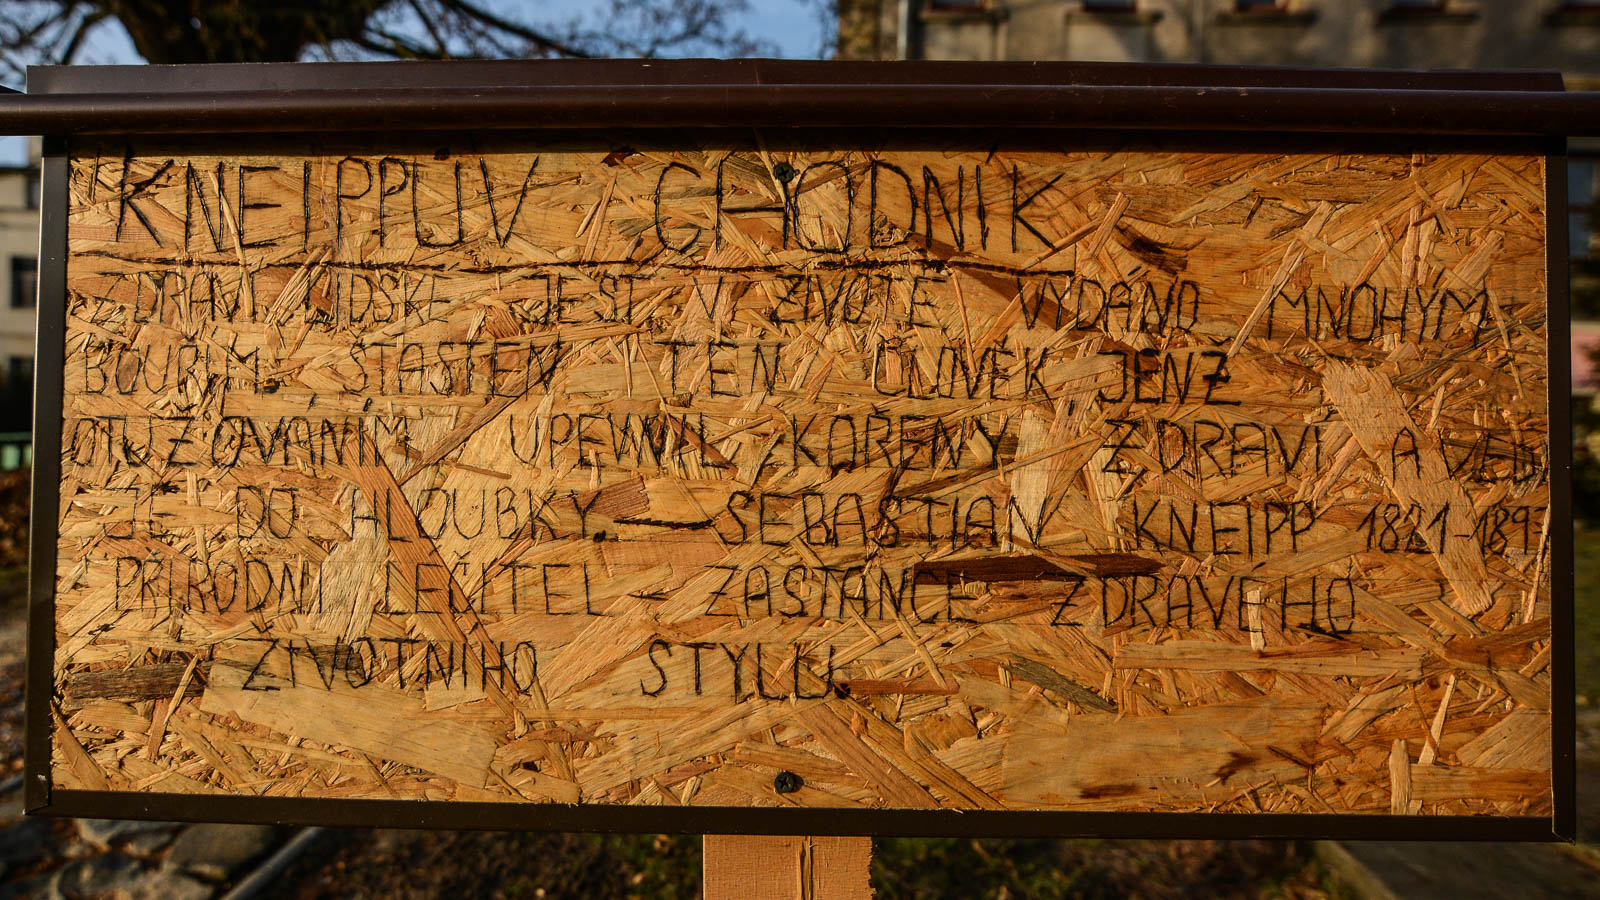 KNEIPPŮV CHODNÍK
ZDRAVÍ LIDSKÉ JEST V ŽIVOTĚ VYDÁNO MNOHÝM
BOUŘÍM, ŠŤASTEN TEN ČLOVĚK, JENŽ
OTUŽOVÁNÍM UPEVNIL KOŘENY ZDRAVÍ A VEDL
JE DO HLOUBKY — SEBASTIAN KNEIPP 1821-1897
PŘÍRODNÍ LÉČITEL - ZASTÁNCE ZDRAVÉHO
ŽIVOTNÍHO STYLU